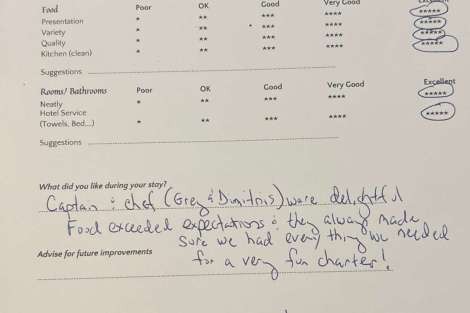 Food Poor OK Good Very Good Excellent
Presentation * ** *** **** *****
Variety * ** *** **** *****
Quality * ** *** **** *****
Kitchen (clean) * ** *** **** *****
Suggestions
Rooms/ Bathrooms Poor OK Good Very Good Excellent
Neatly * ** *** **** *****
Hotel Service
(Towels, Bed,...) * ** *** **** *****
Suggestions
What did you like during your stay?
Captain & chef (Greg & Dimitris) were delightful
Food exceeded expectations & they always made
sure we had everything we needed
Advise for future improvements
for a very fun charter!